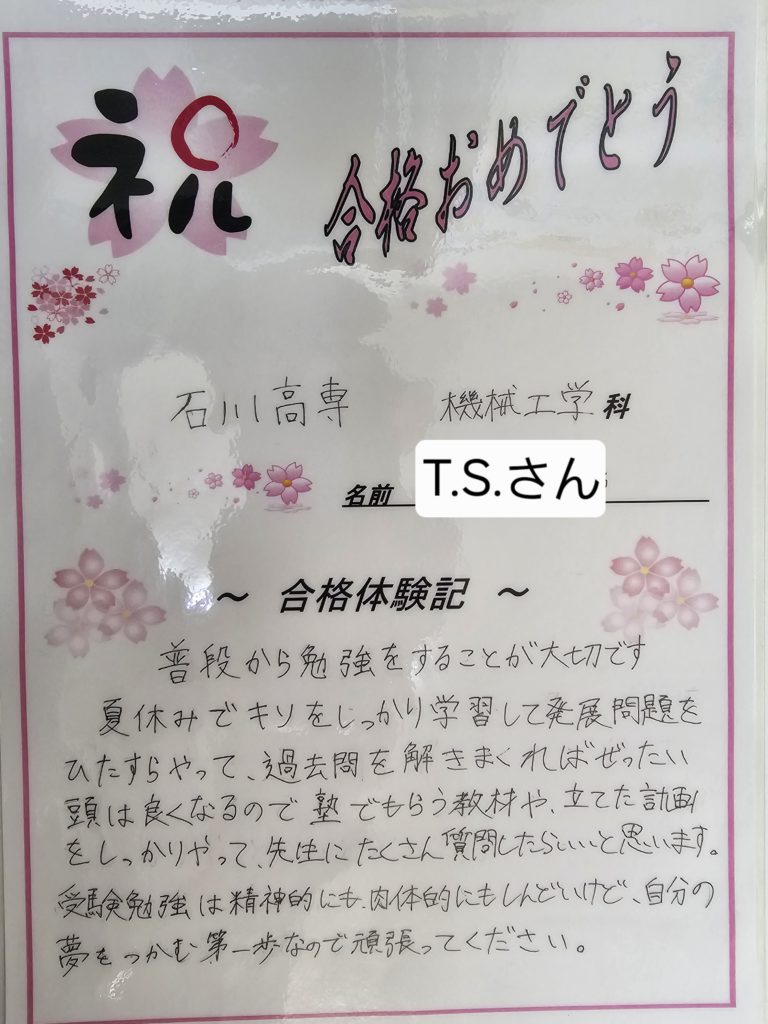 祝
合格おめでとう
石川高専 機械工学科
名前 T.S.さん
～ 合格体験記 ～
普段から勉強をすることが大切です
夏休みでキソをしっかり学習して発展問題を
ひたすらやって、過去問を解きまくればぜったい
頭は良くなるので塾でもらう教材や、立てた計画
をしっかりやって、先生にたくさん質問したらいいと思います。
受験勉強は精神的にも、肉体的にもしんどいけど、自分の
夢をつかむ第一歩なので頑張ってください。